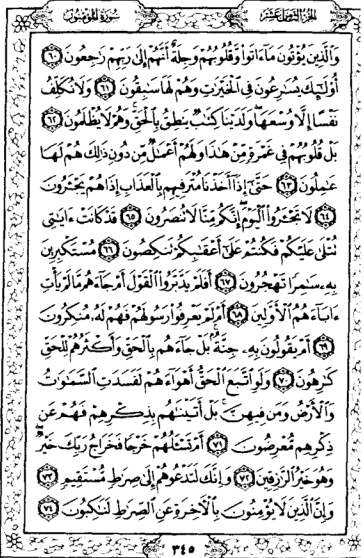 الجزء الثامن عشر
سورة المؤمنون
وَالَّذِينَ يُؤْتُونَ مَا ءَاتَوا وَّقُلُوبُهُمْ وَجِلَةٌ أَنَّهُمْ إِلَىٰ رَبِّهِمْ رَاجِعُونَ ٦٠
أُو۟لَٰٓئِكَ يُسَٰرِعُونَ فِى الْخَيْرَٰتِ وَهُمْ لَهَا سَٰبِقُونَ ٦١ وَلَا نُكَلِّفُ
نَفْسًا إِلَّا وُسْعَهَا وَلَدَيْنَا كِتَٰبٌ يَنطِقُ بِالْحَقِّ وَهُمْ لَا يُظْلَمُونَ ٦٢
بَلْ قُلُوبُهُمْ فِى غَمْرَةٍ مِّنْ هَٰذَا وَلَهُمْ أَعْمَٰلٌ مِّن دُونِ ذَٰلِكَ هُمْ لَهَا
عَٰمِلُونَ ٦٣ حَتَّىٰٓ إِذَآ أَخَذْنَا مُتْرَفِيهِم بِالْعَذَابِ إِذَا هُمْ يَجْـَٔرُونَ
٦٤ لَا تَجْـَٔرُوا الْيَوْمَ إِنَّكُم مِّنَّا لَا تُنصَرُونَ ٦٥ قَدْ كَانَتْ ءَايَٰتِى
تُتْلَىٰ عَلَيْكُمْ فَكُنتُمْ عَلَىٰٓ أَعْقَٰبِكُمْ تَنكِصُونَ ٦٦ مُسْتَكْبِرِينَ
بِهِۦ سَٰمِرًا تَهْجُرُونَ ٦٧ أَفَلَمْ يَدَّبَّرُوا الْقَوْلَ أَمْ جَآءَهُم مَّا لَمْ يَأْتِ
ءَابَآءَهُمُ الْأَوَّلِينَ ٦٨ أَمْ لَمْ يَعْرِفُوا رَسُولَهُمْ فَهُمْ لَهُۥ مُنكِرُونَ
٦٩ أَمْ يَقُولُونَ بِهِۦ جِنَّةٌۢ بَلْ جَآءَهُم بِالْحَقِّ وَأَكْثَرُهُمْ لِلْحَقِّ
كَٰرِهُونَ ٧٠ وَلَوِ اتَّبَعَ الْحَقُّ أَهْوَآءَهُمْ لَفَسَدَتِ السَّمَٰوَٰتُ
وَالْأَرْضُ وَمَن فِيهِنَّ بَلْ أَتَيْنَٰهُم بِذِكْرِهِمْ فَهُمْ عَن
ذِكْرِهِم مُّعْرِضُونَ ٧١ أَمْ تَسْـَٔلُهُمْ خَرْجًا فَخَرَاجُ رَبِّكَ خَيْرٌ
وَهُوَ خَيْرُ الرَّٰزِقِينَ ٧٢ وَإِنَّكَ لَتَدْعُوهُمْ إِلَىٰ صِرَٰطٍ مُّسْتَقِيمٍ ٧٣
وَإِنَّ الَّذِينَ لَا يُؤْمِنُونَ بِالْأَخِرَةِ عَنِ الصِّرَٰطِ لَنَٰكِبُونَ ٧٤
٣٤٥